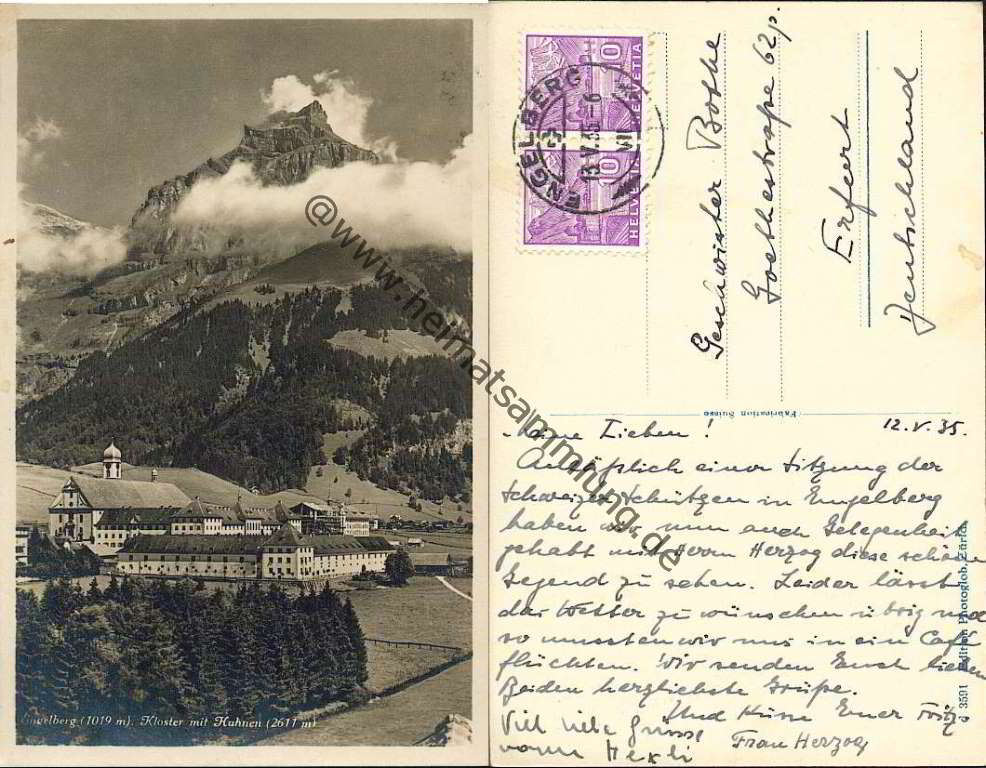 Engelberg (1019 m). Kloster mit Hahnen (2611 m)
@www.heimatsammlung.de
HELVETIA 10
HELVETIA 10
ENGELBERG
13.V.35-6
VII
Geschwister Bothe
Goethestraße 62p.
Erfurt
Deutschland
Fabrication Suisse
J 3591 Edition Photoglob, Zürich
12.V.35.
Meine Lieben!
Anläßlich einer Sitzung der
Schweizer Schützen in Engelberg
haben wir nun auch Gelegenheit
gehabt mit Herrn Herzog diese schöne
Gegend zu sehen. Leider lässt
das Wetter zu wünschen übrig und
so mussten wir uns in ein Café
flüchten. Wir senden Euch lieben
Beiden herzlichste Grüße.
Und Küsse Euer Fritz
Viel liebe Grüsse
vom Hexli
Frau Herzog